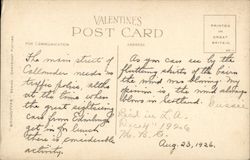 VALENTINES
POST CARD
FOR COMMUNICATION
ADDRESS
PRINTED IN
GREAT
BRITAIN
The main street of
Callander needs no
traffic police, altho
at the time when
the great sightseeing
cars from Edinburgh
get in for lunch
there is considerable
activity.
As you can see by the
fluttering skirts of the bairn
the wind was blowing. My
opinion is, the wind always
blows in Scotland.
Aug. 23, 1926.